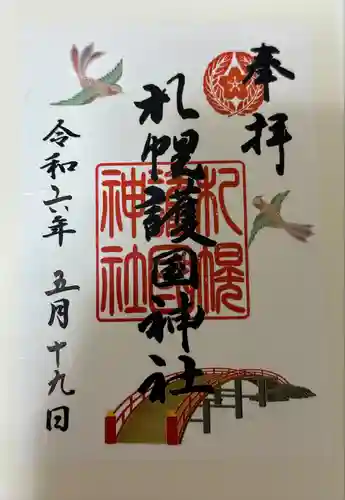 奉拝
札幌護国神社
札幌護国神社
令和六年 五月十九日